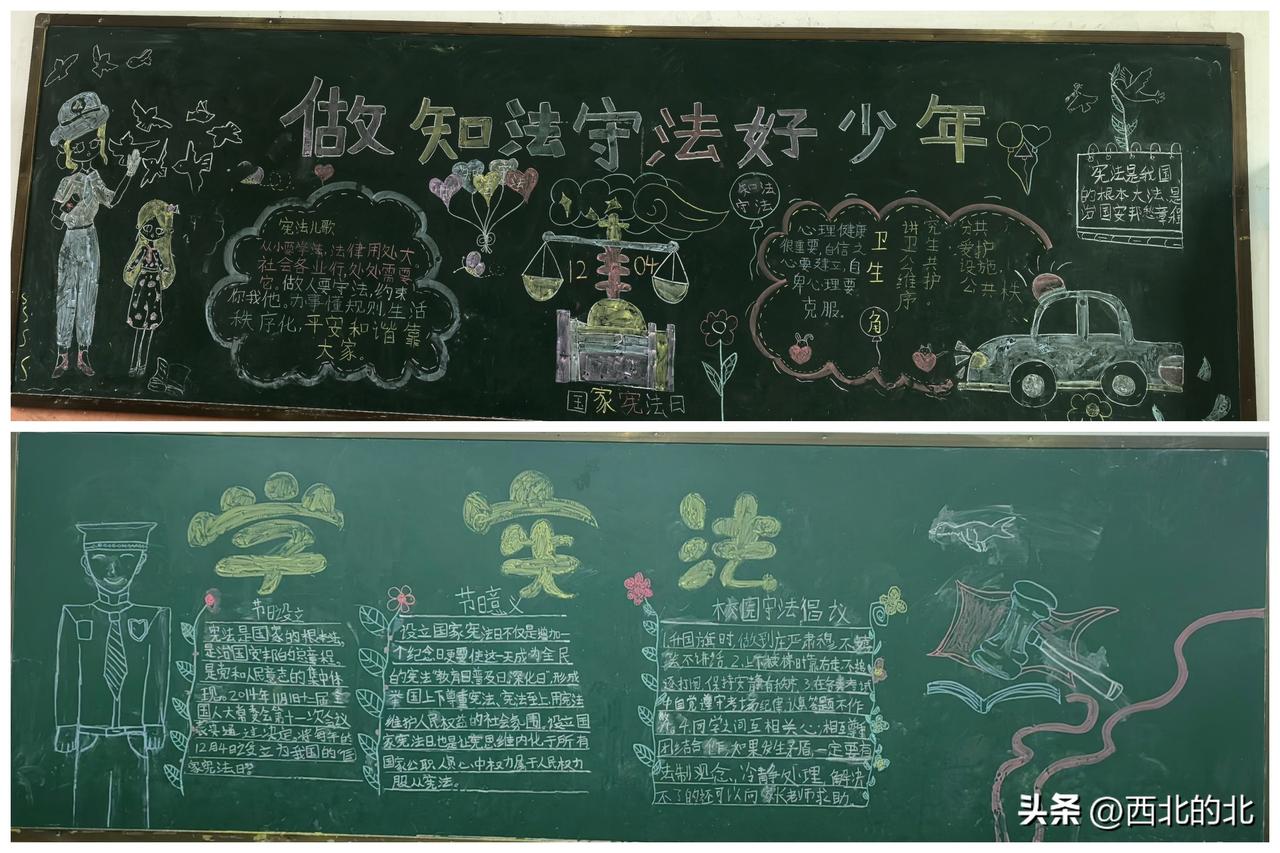 做知法守法好少年
宪法是我国
的根本大法,是
治国安邦总章程
知法
守法
宪法儿歌
从小要学法,法律用处大
社会各业行,处处需要
它。做人要守法,约束
你我他。办事懂规则,生活
秩序化,平安和谐靠
大家。
12 04
国家宪法日
心理健康
很重要,自信之
心要建立,自
卑心理要
克服。
卫生
角
讲究卫生
公共
秩序
爱护
设施
学宪法
节日设立
宪法是国家的根本法,
是治国安邦的总章程,
是党和人民意志的集中体
现。2014年11月1日十届全
国人大常委会第十一次会议
12月4日设立为我国的国
家宪法日
节日意义
设立国家宪法日,不仅是增加一
个纪念日,更要使这一天成为全民
的宪法“教育日、普及日、深化日”,形成
举国上下尊重宪法、宪法至上、用宪法
维护人民权益的社会氛围。设立国
家宪法日也是让宪思维内化于所有
国家公职人员心中权力属于人民,权力
服从宪法。
校园守法倡议
1.升国旗时,做到庄严肃穆,不
不讲话。2.上下楼梯时靠右走,不追
逐打闹,保持安静有秩序。3.在各类考试
中自觉遵守考场纪律,认真答题不作
弊。4.同学之间互相关心,相互尊重
团结合作,如果发生矛盾,一定要有
法制观念,冷静处理,解决
不了的还可以向家长老师求助。
头条 @西北的北